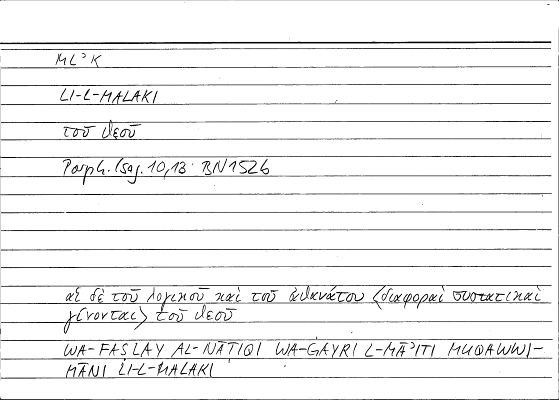 MLʾK
LI-L-MALAKI
τοῦ θεοῦ
Porph. Isag. 10,13 · BN152b
αἱ δὲ τοῦ λογικοῦ καὶ τοῦ ἀθανάτου ⟨διαφοραὶ συστατικαὶ
γίνονται⟩ τοῦ θεοῦ
WA-FAṢLAY AL-NĀṬIQI WA-ĠAYRI L-MĀʾITI MUQAWWI-
MĀNI LI-L-MALAKI